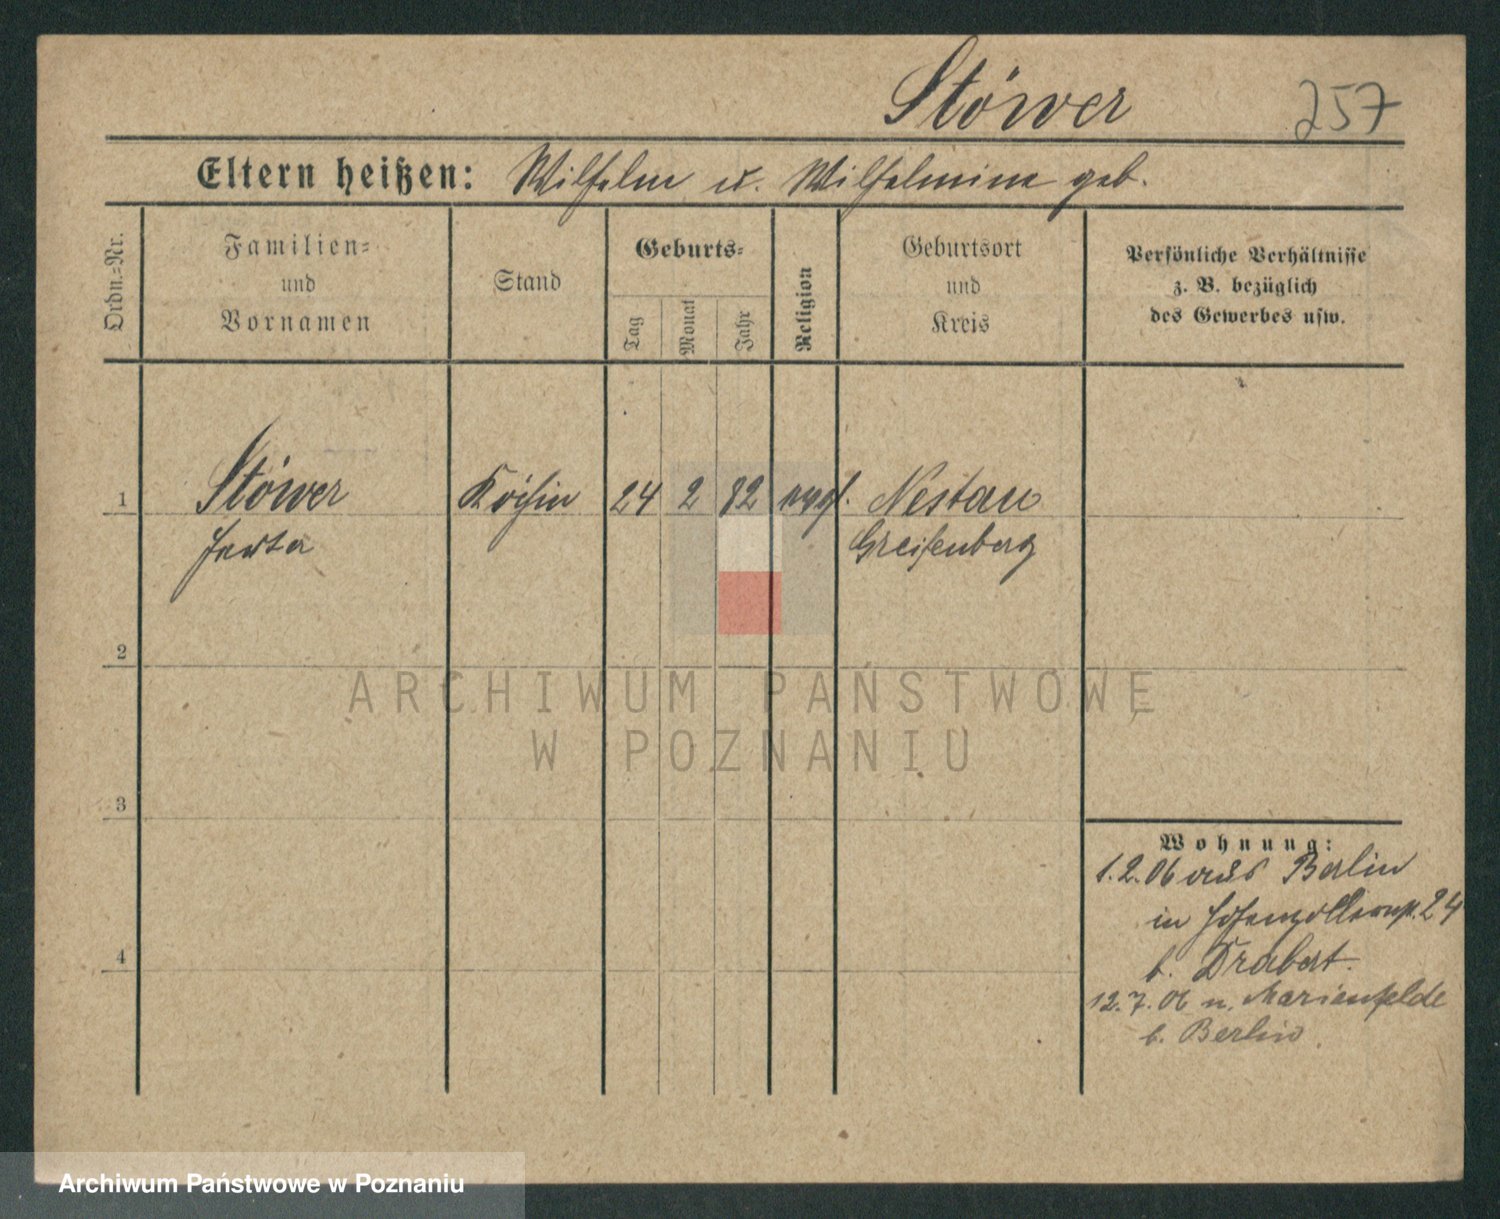 Stöwer 257
Eltern heißen: Wilhelm u. Wilhelmine geb.
Ordn.-Nr.
Familien-
und
Vornamen
Stand
Geburts-
Tag
Monat
Jahr
Religion
Geburtsort
und
Kreis
Persönliche Verhältnisse
z. B. bezüglich
des Gewerbes usw.
1 Stöwer Köchin 24 2 82 evgl. Nestau
Greifenberg
2
3
4
Wohnung:
1.2.06 aus Berlin
in Hohenzollernstr. 24
b. Drabert.
12.7.06 n. Marienfelde
b. Berlin.
ARCHIWUM PAŃSTWOWE
W POZNANIU
Archiwum Państwowe w Poznaniu